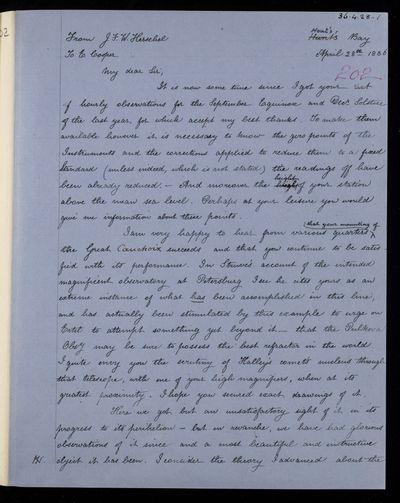 36.4.28-1
From J. F. W. Herschel
Hout's,
Bay
To E. Cooper
April 28th 1836
202
My dear Sir,
It is now some time since I got your set
of hourly observations for the September Equinox and Decr. Solstice
of the last year, for which accept my best thanks. To make them
available however it is necessary to know the zero points of the
Instruments and the corrections applied to reduce them to a fixed
standard (unless indeed, which is not stated) the readings off have
been already reduced. – And moreover the
height
of your station
above the mean sea level. Perhaps at your leisure you would
give me information about these points.
(that your mounting of
I am very happy to hear from various quarters
the Great Cauchoix succeeds and that you continue to be satis-
fied with its performance. In Struve's account of the intended
magnificent observatory at Petersburg I see he cites yours as an
extreme instance of what has been accomplished in this line,
and has actually been stimulated by this example to urge on
Ertel to attempt something yet beyond it – that the Pulkova
Obsy may be sure to possess the best refractor in the world.
I quite envy you the scrutiny of Halley's comet's nucleus through
that telescope, with one of your high magnifiers, when at its
greatest proximity. I hope you secured exact drawings of it.
Here we got but an unsatisfactory sight of it in its
progress to its perihelion – but en revanche, we have had glorious
observations of it since and a most beautiful and instructive
object it has been. I consider the theory I advanced about the